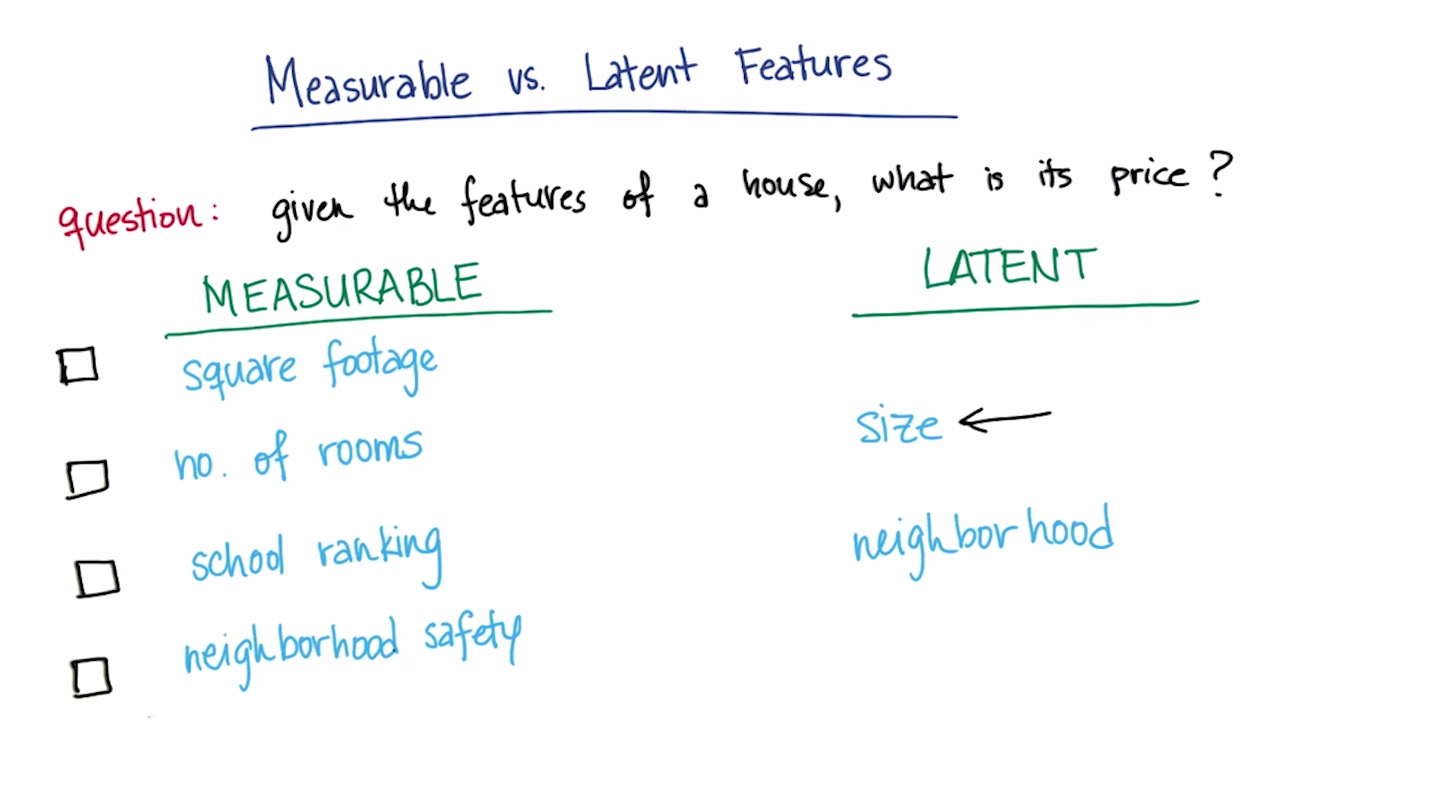 Measurable vs. Latent Features
question: given the features of a house, what is its price?
MEASURABLE
LATENT
square footage
no. of rooms
school ranking
neighborhood safety
size
neighborhood